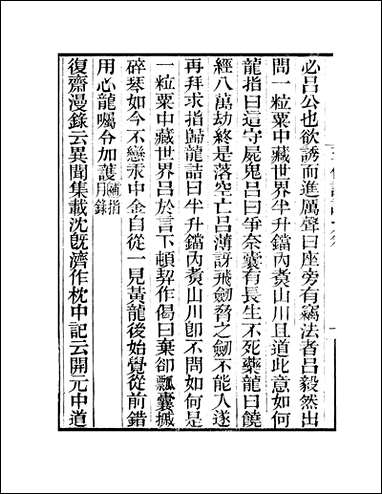 必呂公也欲誘而進厲聲曰座旁有竊法者呂毅然出
問一粒粟中藏世界半升鐺內煑山川且道此意如何
龍指曰這守屍鬼呂曰爭奈囊有長生不死藥龍曰饒
經八萬劫終是落空亡呂薄訝飛劔脅之劔不能入遂
再拜求指歸龍詰曰半升鐺內煑山川卽不問如何是
一粒粟中藏世界呂於言下頓契作偈曰棄卻瓢囊摵
碎琴如今不戀汞中金自從一見黃龍後始覺從前錯
用心龍囑令加護指月錄
復齋漫錄云異聞集載沈旣濟作枕中記云開元中道